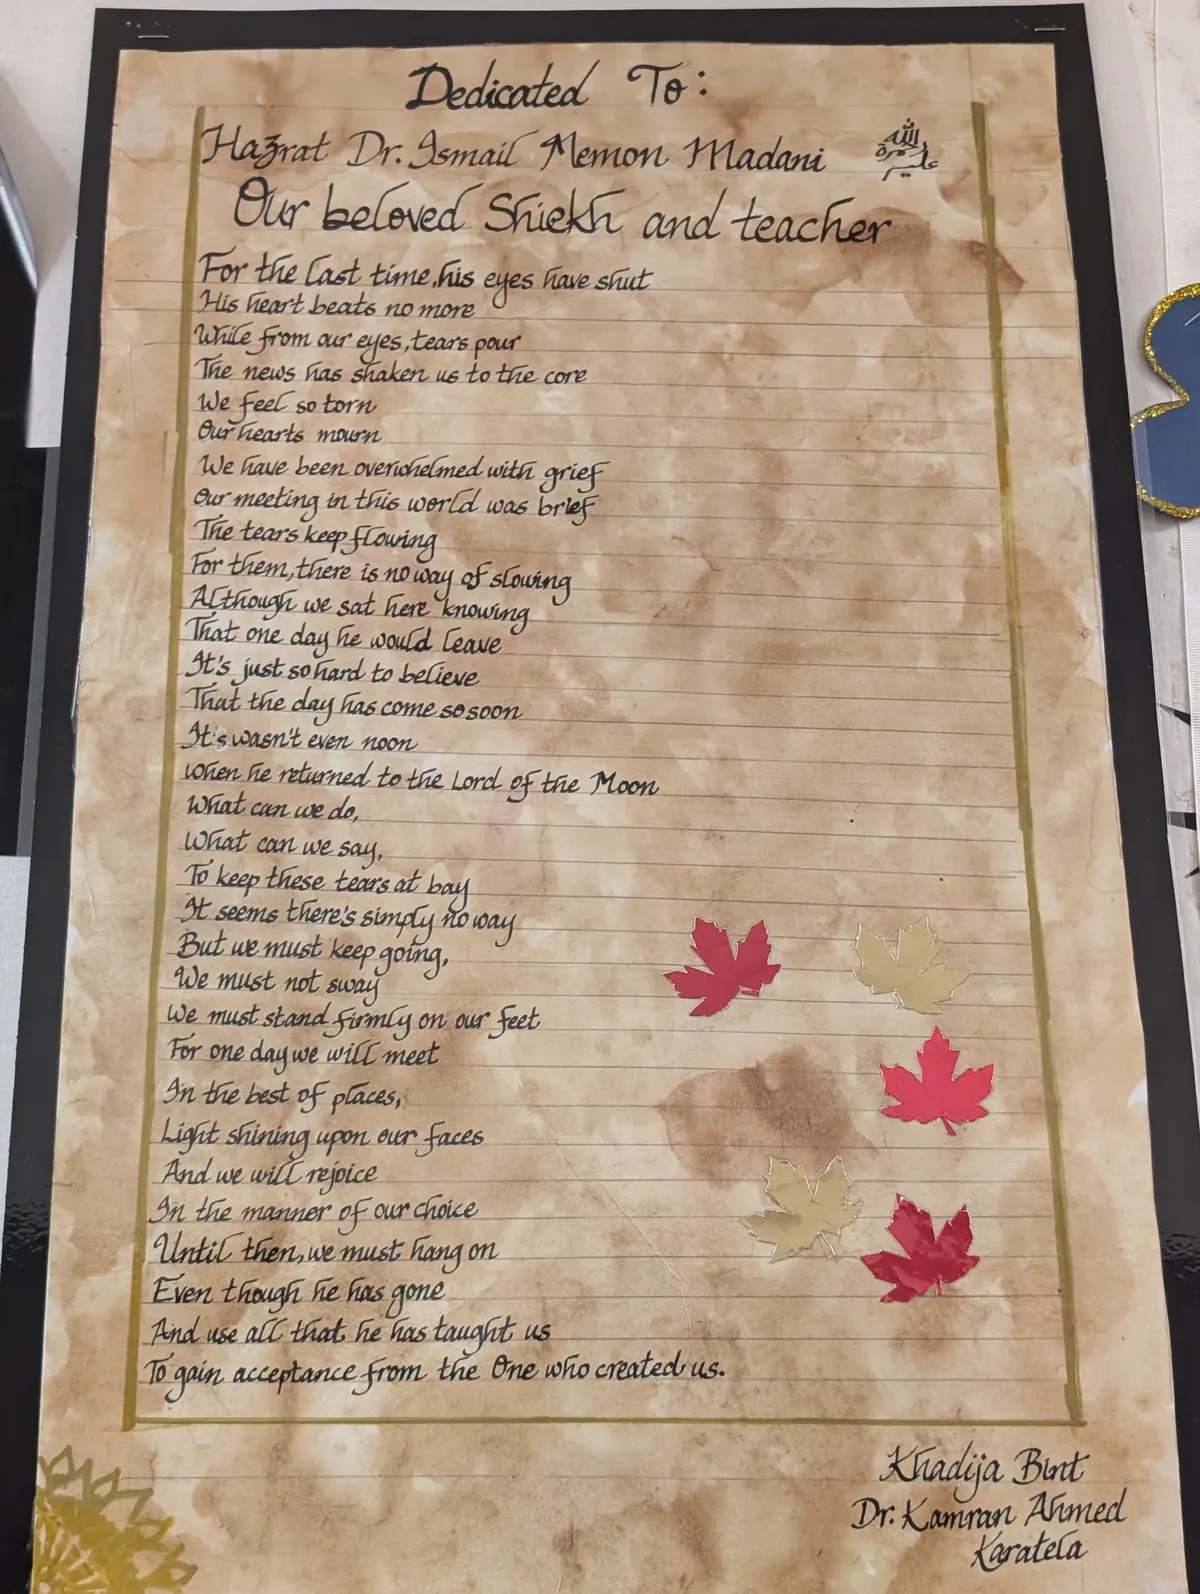 Dedicated To:
Hazrat Dr. Ismail Memon Madani رحمة الله عليه
Our beloved Shiekh and teacher
For the last time, his eyes have shut
His heart beats no more
While from our eyes, tears pour
The news has shaken us to the core
We feel so torn
Our hearts mourn
We have been overwhelmed with grief
Our meeting in this world was brief
The tears keep flowing
For them, there is no way of slowing
Although we sat here knowing
That one day he would leave
It's just so hard to believe
That the day has come so soon
It's wasn't even noon
when he returned to the Lord of the Moon
What can we do,
What can we say,
To keep these tears at bay
It seems there's simply no way
But we must keep going,
We must not sway
We must stand firmly on our feet
For one day we will meet
In the best of places,
Light shining upon our faces
And we will rejoice
In the manner of our choice
Until then, we must hang on
Even though he has gone
And use all that he has taught us
To gain acceptance from the One who created us.
Khadija Bint
Dr. Kamran Ahmed
Karatela